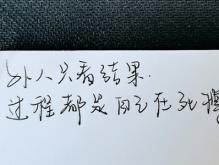 外人只看结果.
过程都是自己在死撑